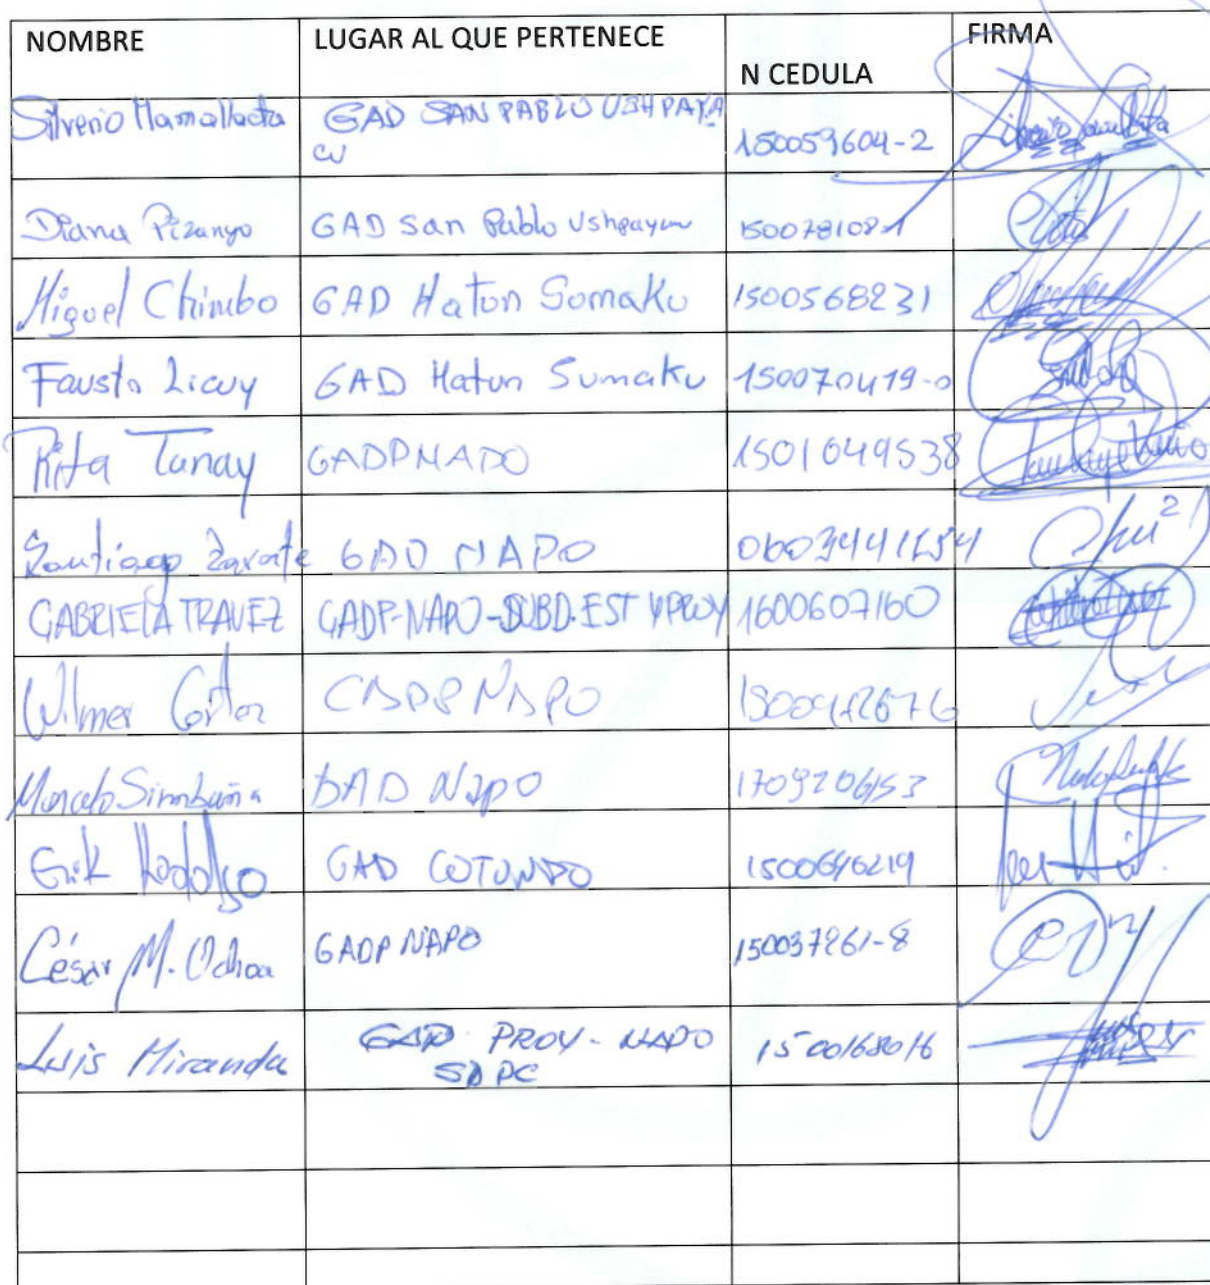 NOMBRE LUGAR AL QUE PERTENECE N CEDULA FIRMA
Silverio Mamallacta GAD SAN PABLO USHPAYA 150059604-2
cu
Diana Pizango GAD San Pablo Ushpayacu 150078108-1
Miguel Chimbo GAD Hatun Somaku 1500568231
Fausto Licuy GAD Hatun Sumaku 150070419-0
Rita Tanay GADPNAPO 1501049538
Santiago Zarate GAD NAPO
GABRIELA TRAVEZ GADP-NAPO-SUBD.EST Y PROY 1600607160
Wilmer NAPO
Marcelo Simbaña GAD Napo 1709206153
Erik GAD COTUNDO 1500646219
César M. Ochoa GADP NAPO 150037261-8
Luis Miranda GAD PROV-NAPO 1500168016
SDPC